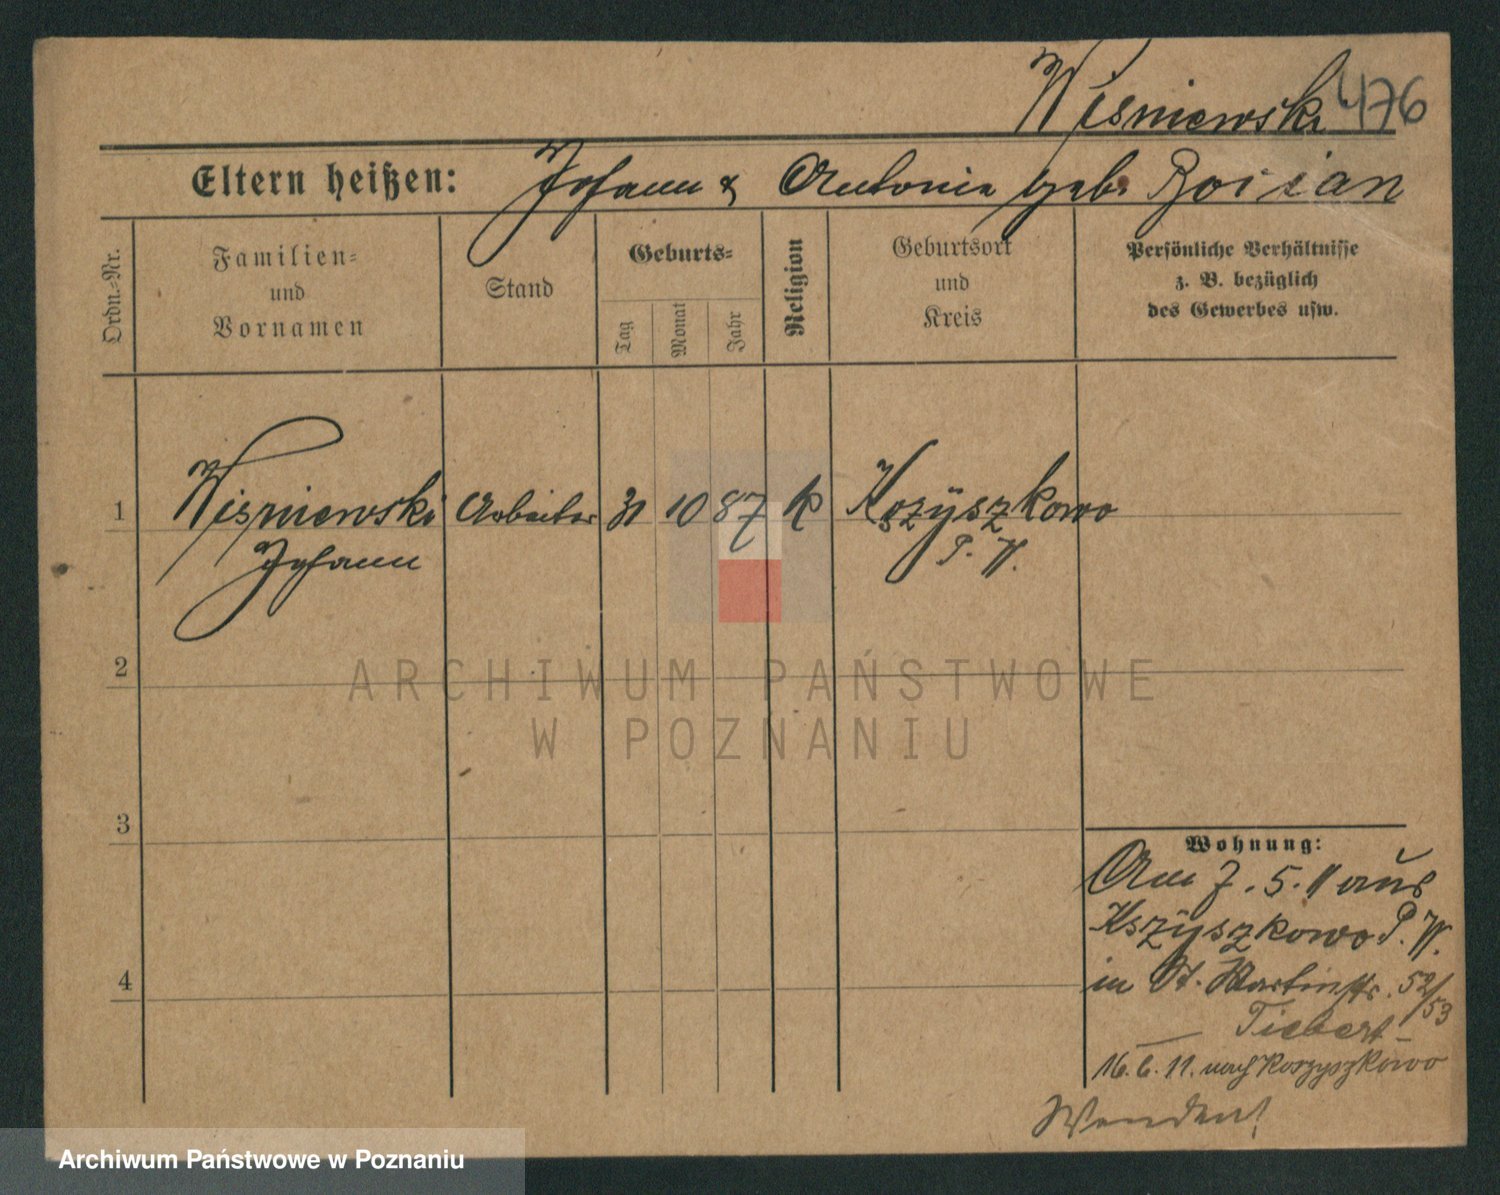 Wisniewski 476
Eltern heißen: Johann & Antonie geb. Boisian
Ordn.-Nr.
Familien-
und
Vornamen
Stand
Geburts-
Tag
Monat
Jahr
Religion
Geburtsort
und
Kreis
Persönliche Verhältnisse
z. B. bezüglich
des Gewerbes usw.
1 Wisniewski Arbeiter 31 10 87 K Kszyszkowo
Johann P. W.
2
3
4
Wohnung:
Am 7. 5. 11 aus
Kszyszkowo P. W.
in St. Martinstr. 52/53
Tiebert
16. 6. 11. nach Koszyszkowo
Wenden!
ARCHIWUM PAŃSTWOWE
W POZNANIU
Archiwum Państwowe w Poznaniu